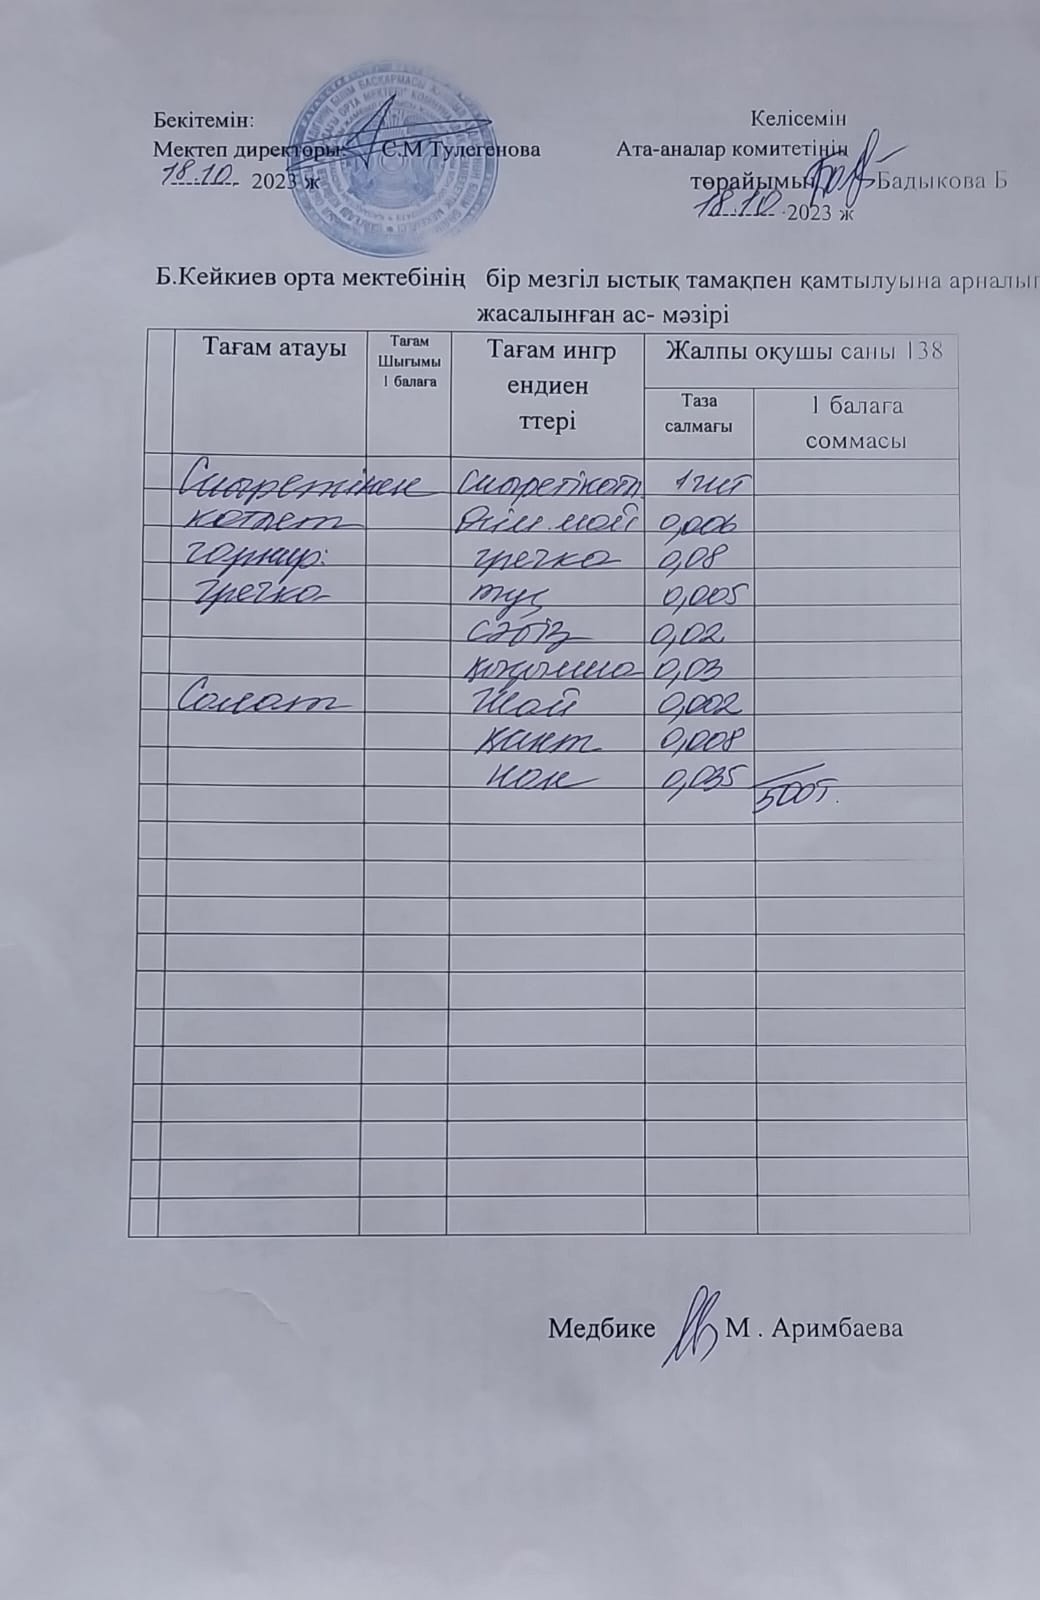 Бекітемін:
Мектеп директоры С.М Тулегенова
18.10. 2023 ж
Келісемін
Ата-аналар комитетінің
төрайымы Бадыкова Б
18.10 2023 ж
Б.Кейкиев орта мектебінің бір мезгіл ыстық тамақпен қамтылуына арналып
жасалынған ас- мәзірі
Тағам атауы
Тағам
Шығымы
1 балаға
Тағам ингр
ендиен
ттері
Жалпы оқушы саны 138
Таза
салмағы
1 балаға
соммасы
Сиыретінен сиыретікотл 1шт
котлет өсім.май 0,006
гарнир: гречка 0,08
гречка тұз 0,005
сәбіз 0,02
қызылша 0,03
Салат Шай 0,002
қант 0,008
нан 0,035
500т.
Медбике М . Аримбаева